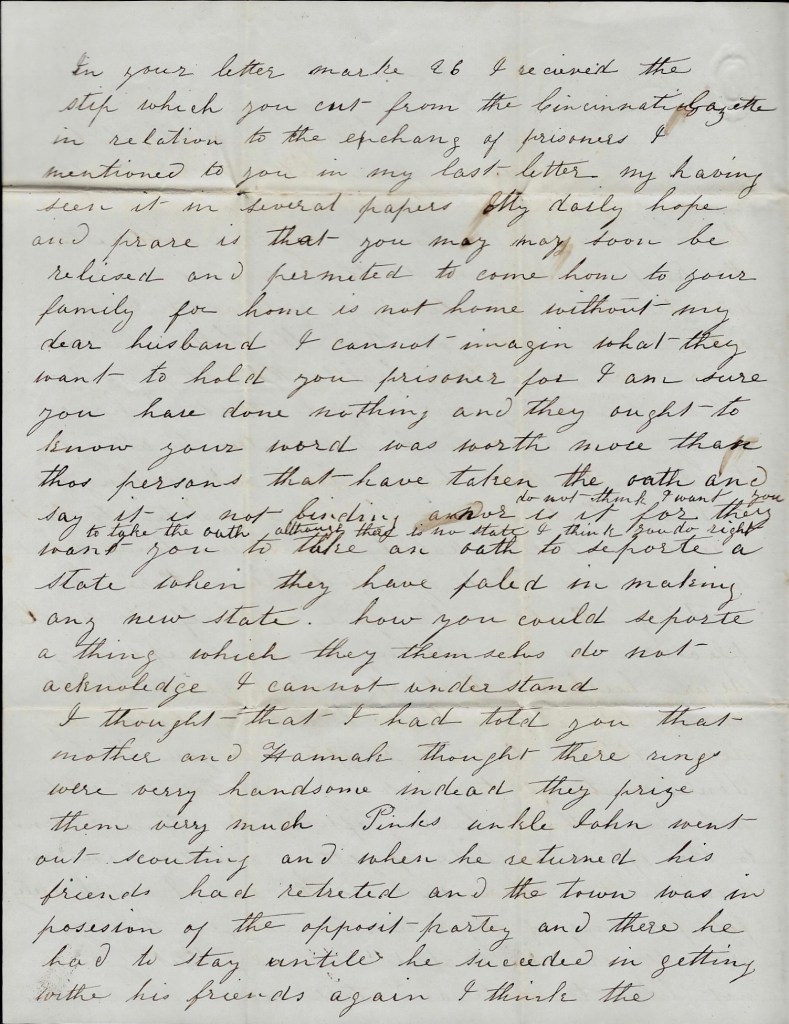 In your letter marke 26 I recieved the
slip which you cut from the Cincinnati Gazette
in relation to the exchang of prisoners I
mentioned to you in my last letter my having
seen it in several papers My daily hope
and prare is that you may may soon be
reliesed and permeted to come hom to your
family for home is not home without my
dear husband I cannot imagin what they
want to hold you prisoner for I am sure
you have done nothing and they ought to
know your word was worth more than
thos persons that have taken the oath and
do not think I want you
say it is not binding is it for they
to take the oath there is no state I think you do right
want you to take an oath to seporte a
state when they have faled in making
any new state. how you could seporte
a thing which they themselvs do not
acknoledge I cannot understand
I thought that I had told you that
mother and Hannah thought there rings
were verry handsome indead they prize
them verry much Pinks unkle John went
out scouting and when he returned his
friends had retreted and the town was in
posesion of the opposit partey and there he
had to stay untile he succeded in getting
withe his friends again I think the